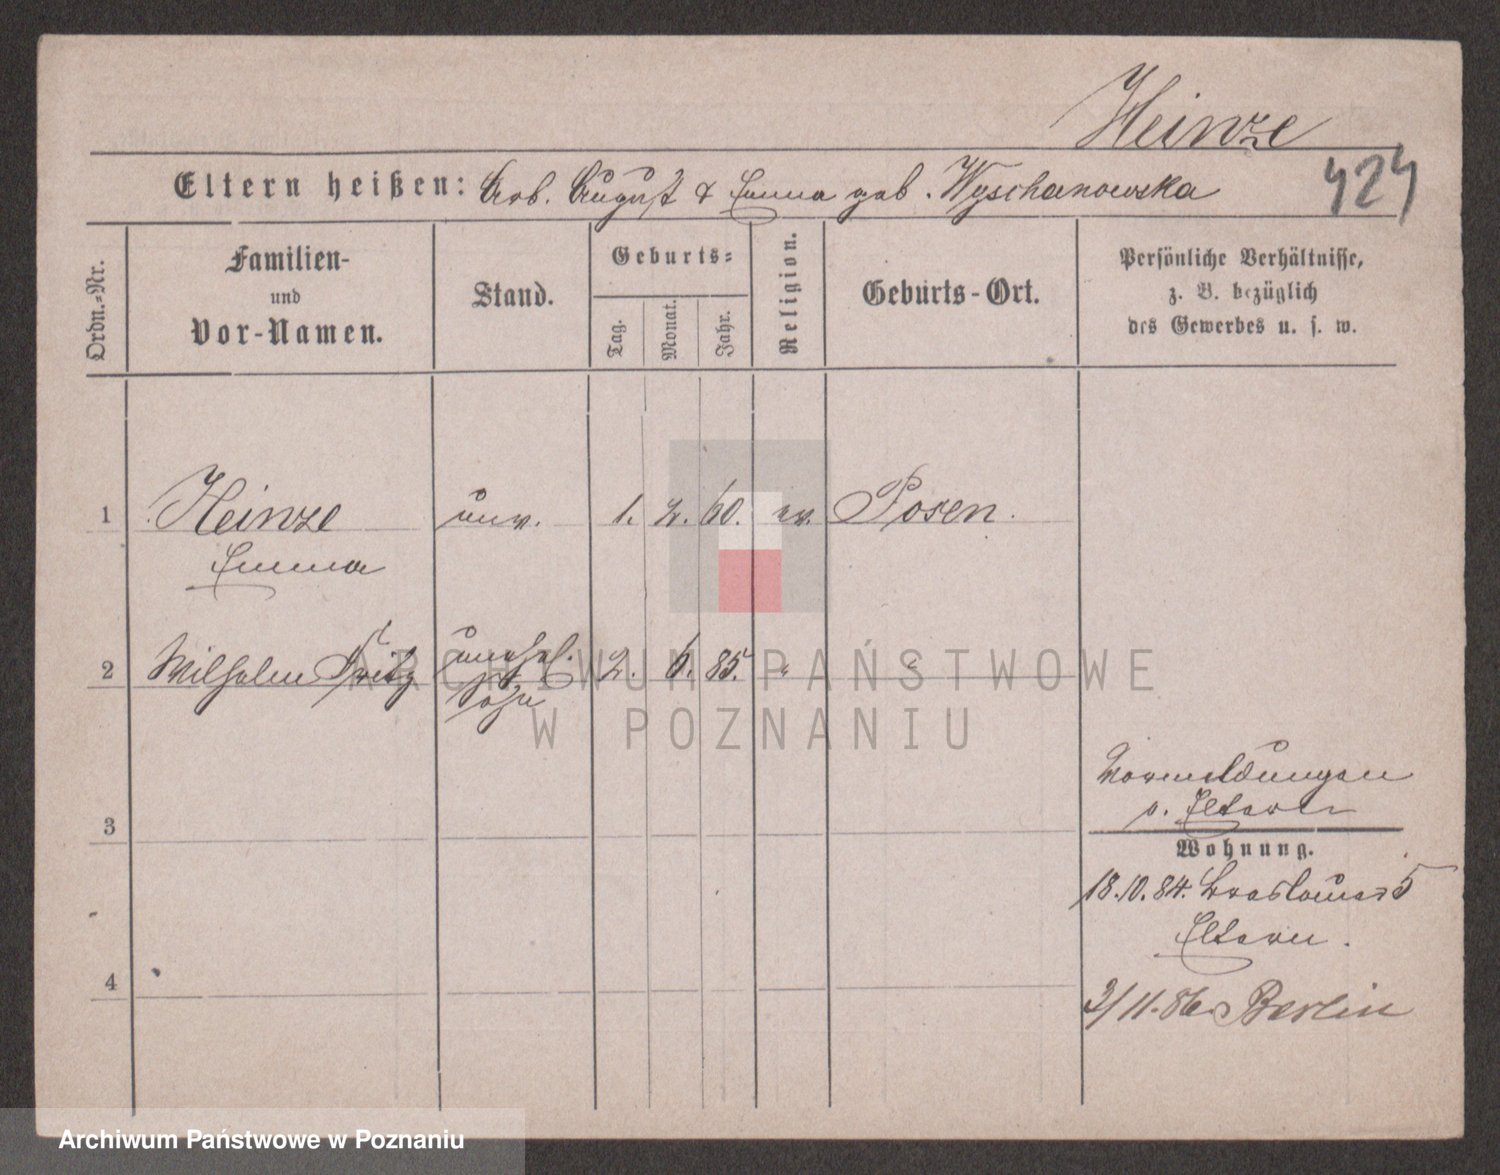 Heinze
Eltern heißen: Arb. August & Emma geb. Wyschanowska
424
Ordn.-Nr.
Familien-
und
Vor-Namen.
Stand.
Geburts-
Tag.
Monat.
Jahr.
Religion.
Geburts-Ort.
Persönliche Verhältnisse,
z. B. bezüglich
des Gewerbes u. s. w.
1 Heinze unv. 1. 2. 60. ev. Posen.
Emma
2 Wilhelm Fritz unehel. 2. 6. 85. " "
Sohn
3
Vormeldungen
s. Eltern
Wohnung.
18.10.84. Breslauer 5
Eltern.
4
3/11.86. Berlin
ARCHIWUM PAŃSTWOWE
W POZNANIU
Archiwum Państwowe w Poznaniu